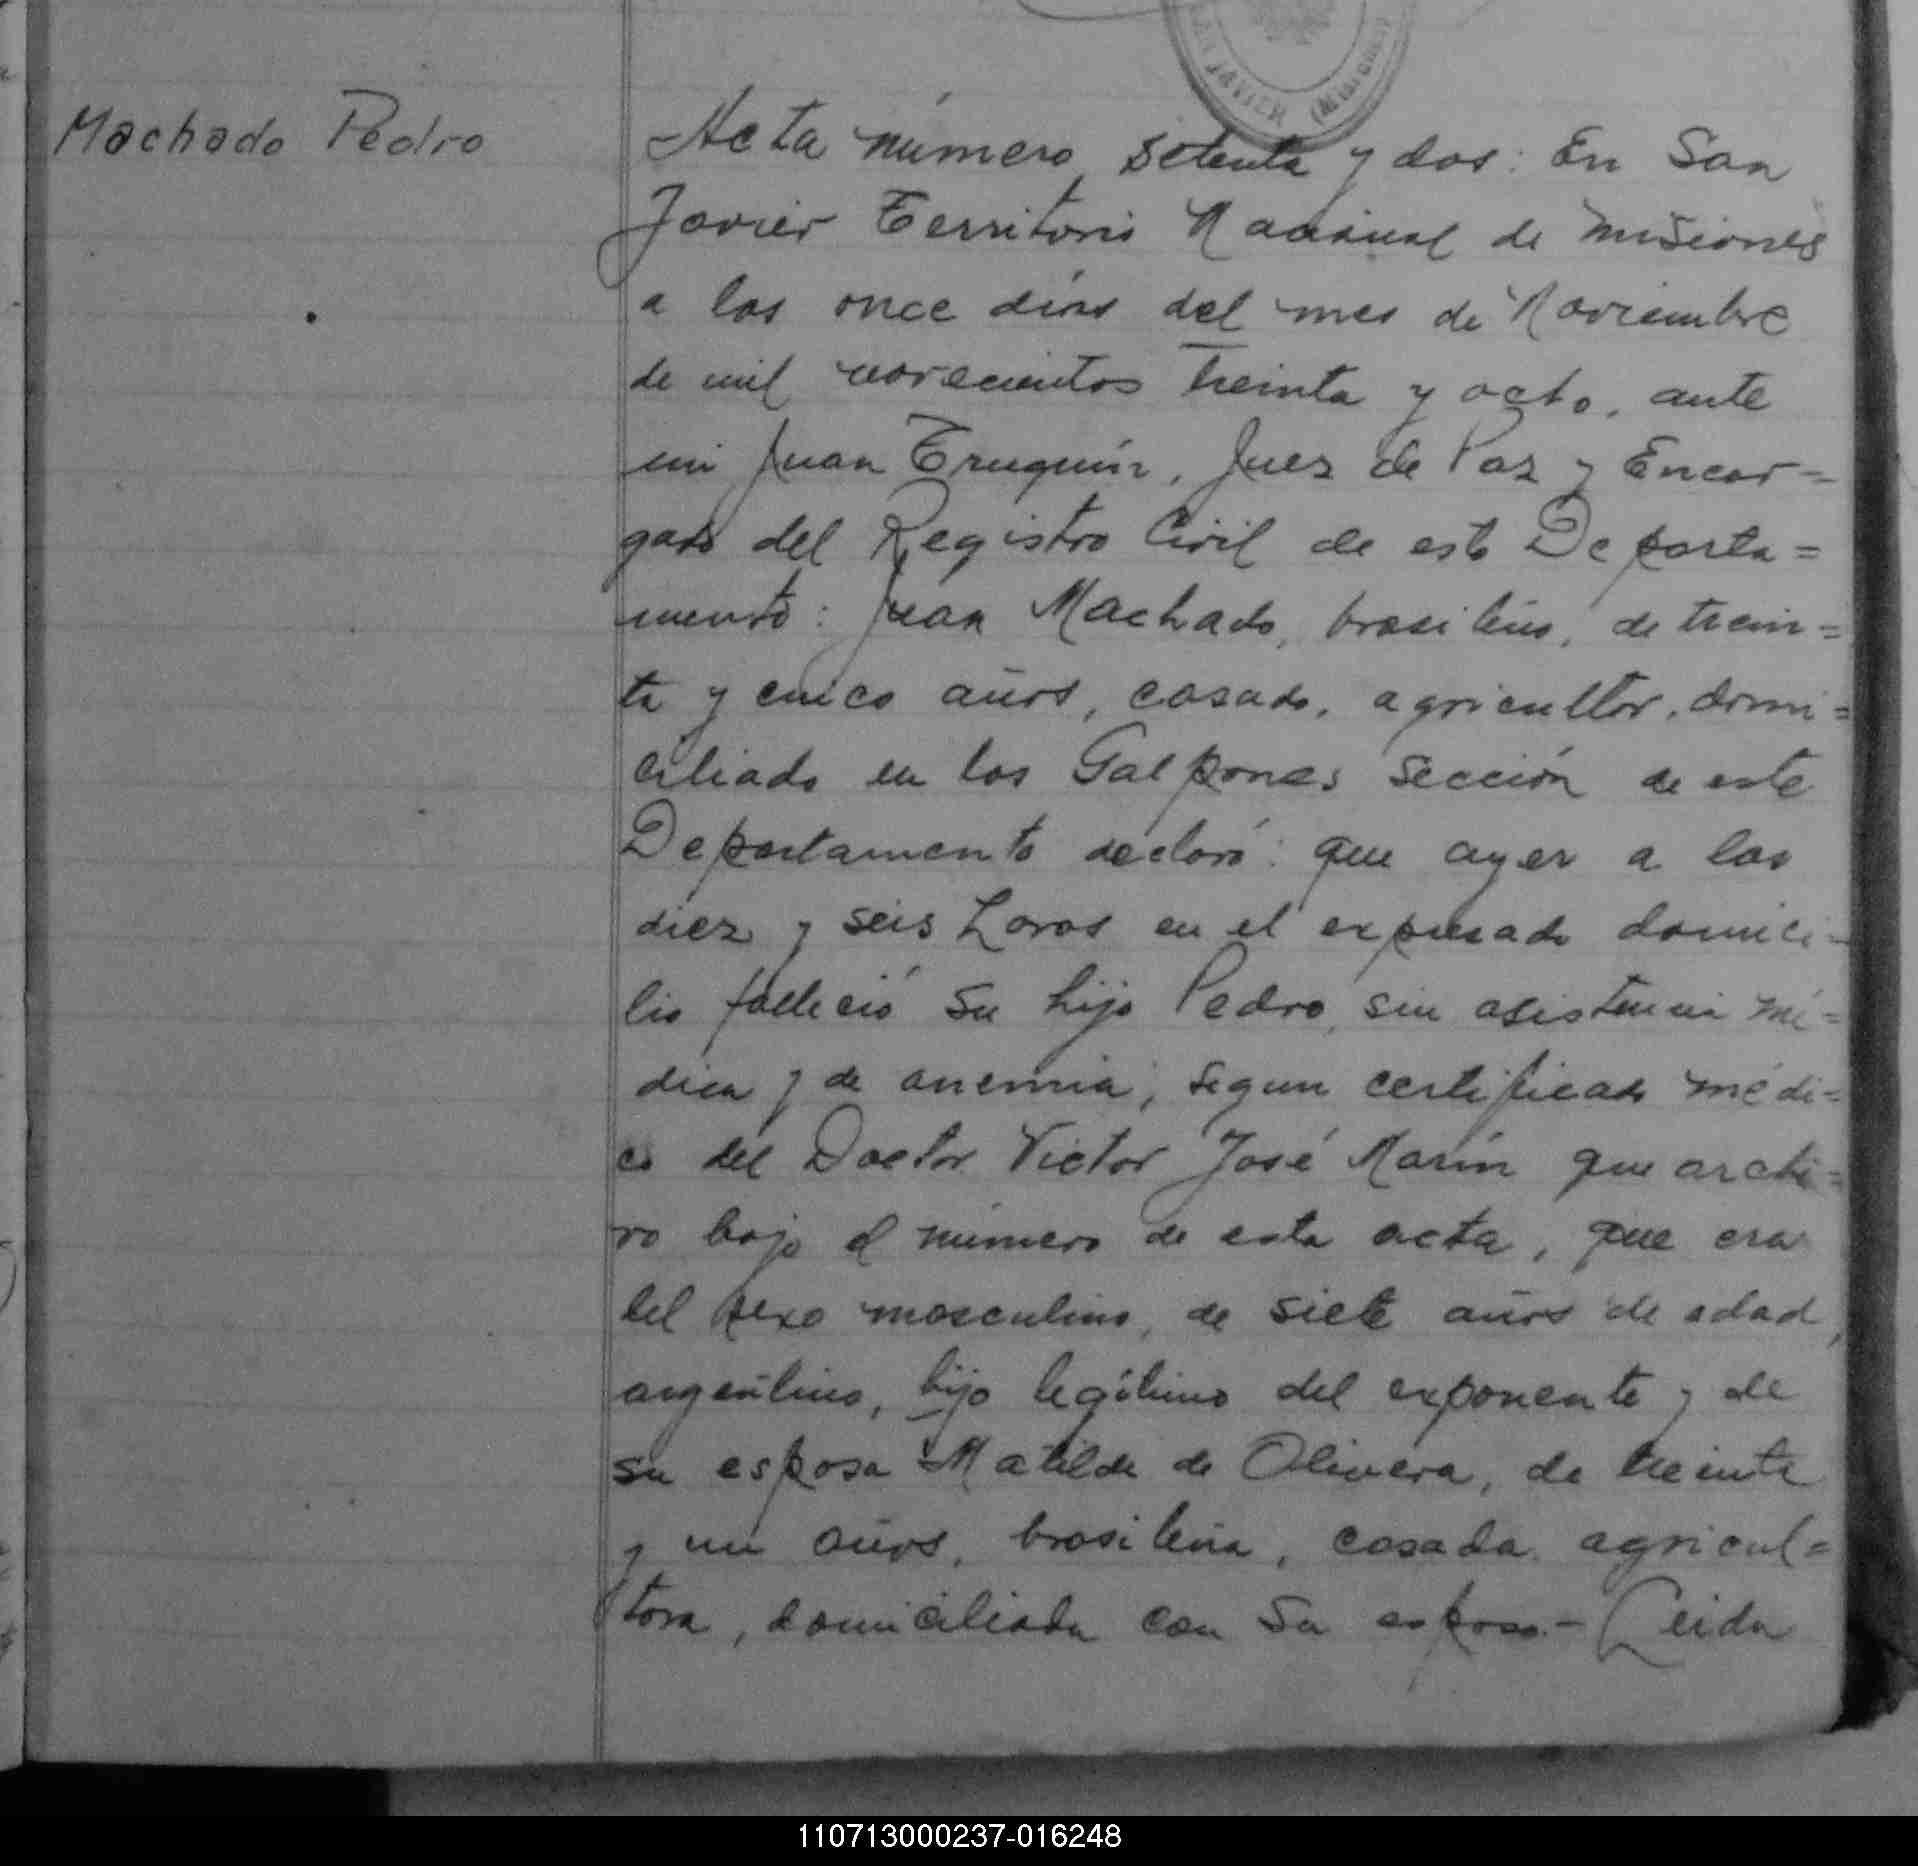 SAN JAVIER (Misiones)
Machado Pedro
Acta número setenta y dos: En San
Javier Territorio Nacional de Misiones
a los once días del mes de Noviembre
de mil novecientos treinta y ocho, ante
mi Juan Truquín, Juez de Paz y Encar=
gado del Registro Civil de este Departa=
mento: Juan Machado, brasileño, de trein=
ta y cinco años, casado, agricultor, domi=
ciliado en los Galpones Sección de este
Departamento declaró: que ayer a las
diez y seis horas en el expresado domici=
lio falleció su hijo Pedro, sin asistencia mé=
dica y de anemia, segun certificado médi=
co del Doctor Victor José Marín que archi=
vo bajo el número de esta acta, que era
del sexo masculino, de siete años de edad,
argentino, hijo legítimo del exponente y de
su esposa Matilde de Olivera, de treinta
y un años, brasileña, casada, agricul=
tora, domiciliada con su esposo.- Leida
110713000237-016248